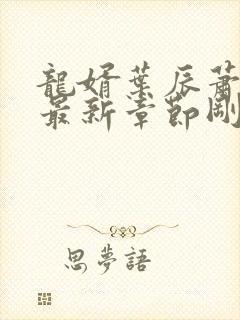 龍婿葉辰蕭
最新章節剛
思夢語